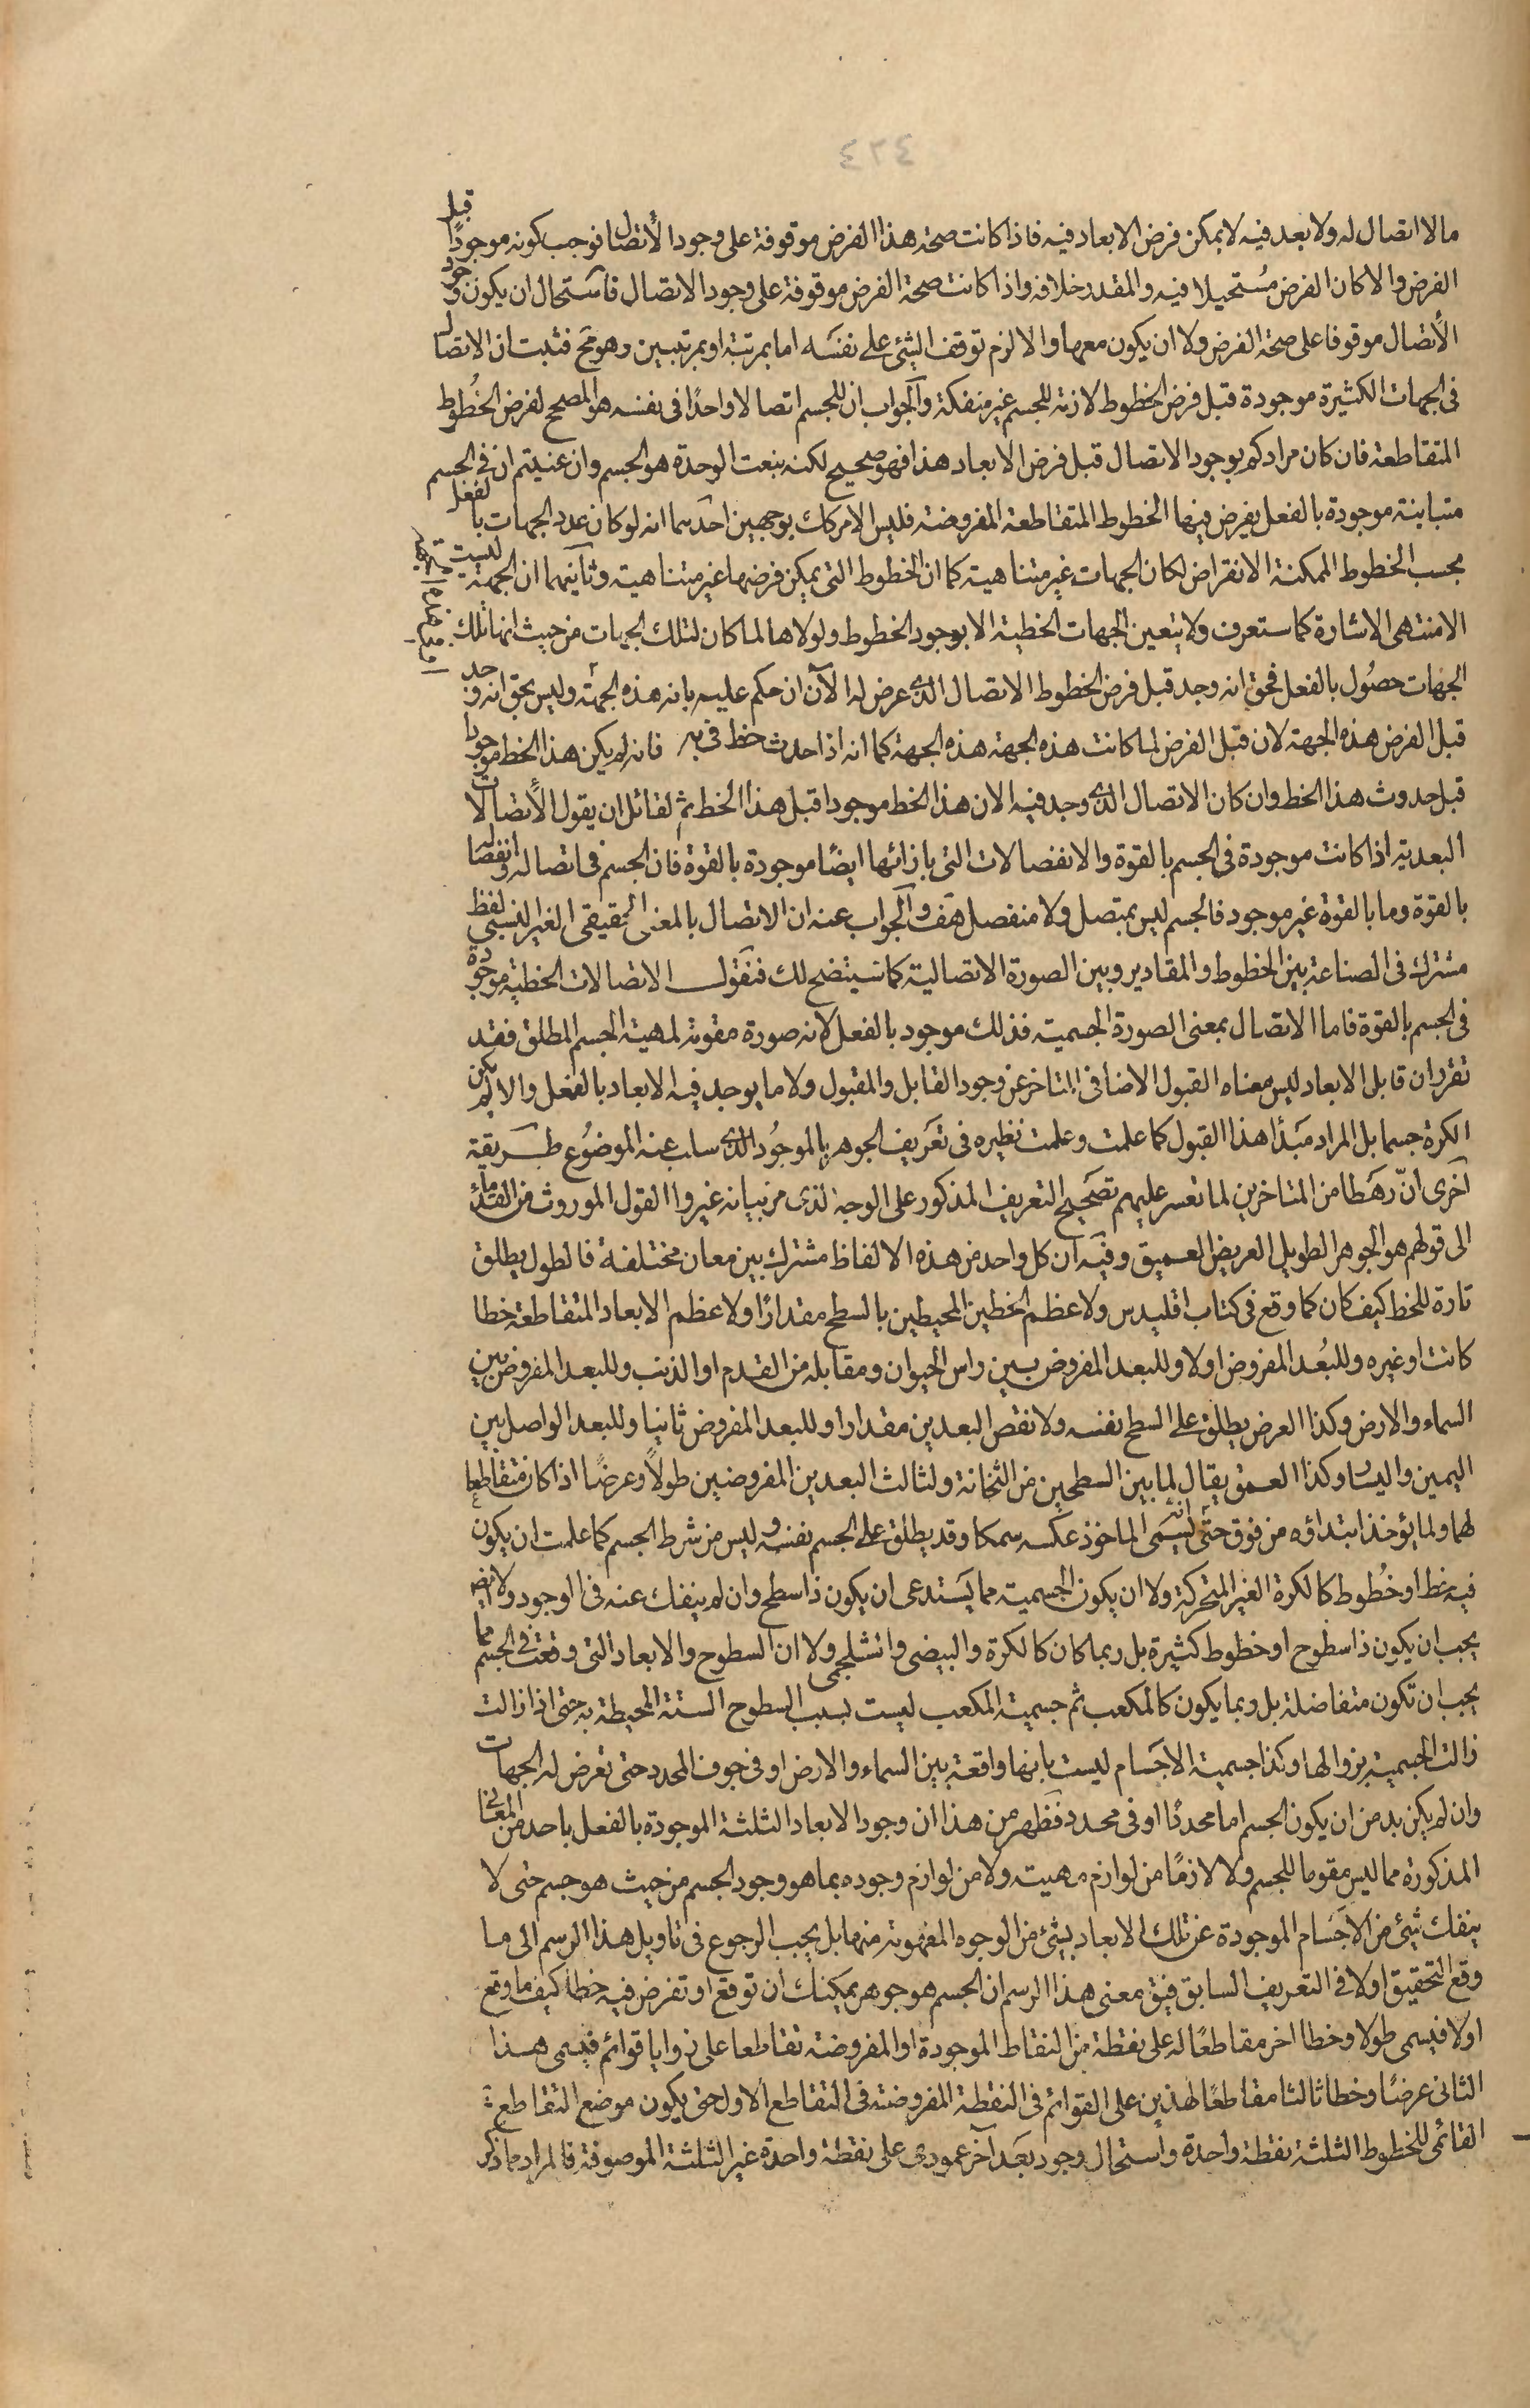 ٤٢٤
مالا اتصال له ولا بعد فيه لا يمكن فرض الابعاد فيه فاذا كانت صحة هذا الفرض موقوفة على وجود الاتصال فوجب كونه موجودًا قبل
الفرض والا كان الفرض مستحيلا فيه والمقدر خلافه واذا كانت صحة الفرض موقوفة على وجود الاتصال فاستحال ان يكون وجود
الاتصال موقوفا على صحة الفرض ولا ان يكون معها والا لزم توقف الشئ على نفسه اما بمرتبة او بمرتبتين وهو مح فثبت ان الاتصال
فى الجهات الكثيرة موجودة قبل فرض الخطوط لازمة للجسم غير منفكة والجواب ان للجسم اتصالا واحدًا فى نفسه هو المصحح لفرض الخُطوط
المتقاطعة فان كان مرادكم بوجود الاتصال قبل فرض الابعاد هذا فهو صحيح لكنه بنعت الوحدة هو الجسم وان عنيتم ان فى الجسم
متباينة موجودة بالفعل يفرض فيها الخطوط المتقاطعة المفروضة فليس الامر كك بوجهين احدهما انه لو كان عدد الجهات بالفعل
بحسب الخطوط الممكنة الانفراض لكان الجهات غير متناهية كما ان الخطوط التى يمكن فرضها غير متناهية وثانيهما ان الجهة ليست
الا منتهى الاشارة كما ستعرف ولا يتعين الجهات الخطية الا بوجود الخطوط ولولاها لما كان لتلك الجهات من حيث انها تلك
الجهات حصُول بالفعل فحق انه وجد قبل فرض الخطوط الاتصال الذى عرض له الآن ان حكم عليه بانه هذه الجهة وليس بحق انه وجد
قبل الفرض هذه الجهة لان قبل الفرض لما كانت هذه الجهة هذه الجهة كما انه اذا حدث خط فى فانه لم يكن هذا الخط موجودا
قبل حدوث هذا الخط وان كان الاتصال الذى وجد فيه الان هذا الخط موجودا قبل هذا الخط ثم لقائل ان يقول الاتصالات
البعدية اذا كانت موجودة فى الجسم بالقوة والانفصالات التى بازائها ايضًا موجودة بالقوة فان الجسم فى اتصاله وانفصاله
بالقوة وما بالقوة غير موجود فالجسم ليس بمتصل ولا منفصل هف والجواب عنه ان الاتصال بالمعنى الحقيقى الغير النسبى لفظ
مشترك فى الصناعة بين الخطوط والمقادير وبين الصورة الاتصالية كما سيتضح لك فنقول الاتصالات الخطية موجودة
فى الجسم بالقوة فاما الاتصال بمعنى الصورة الجسمية فذلك موجود بالفعل لانه صورة مقومة لمهية الجسم المطلق فقد
تقرر ان قابل الابعاد ليس معناه القبول الاضافى المتاخر عن وجود القابل والمقبول ولا ما يوجد فيه الابعاد بالفعل والا لم يكن
الكرة جسما بل المراد مبدأ هذا القبول كما علمت وعلمت نظيره فى تعريف الجوهر بالموجُود الذى سلب عنه الموضُوع طريقة
اخرى انّ رهطا من المتاخرين لما تعسر عليهم تصحيح التعريف المذكور على الوجه الذى مر بيانه غيروا القول الموروث من القدماء
الى قولهم هو الجوهر الطويل العريض العميق وفيه ان كل واحد من هذه الالفاظ مشترك بين معان مختلفة فالطول يطلق
تارة للخط كيف كان كما وقع فى كتاب اقليدس ولاعظم الخطين المحيطين بالسطح مقدارًا ولاعظم الابعاد المتقاطعة خطا
كانت او غيره وللبُعد المفروض اولا وللبعد المفروض بين راس الحيوان ومقابله من القدم او الذنب وللبعد المفروض بين
السماء والارض وكذا العرض يطلق على السطح نفسه ولانقص البعدين مقدارا وللبعد المفروض ثانيا وللبعد الواصل بين
اليمين واليسار وكذا العمق يقال لما بين السطحين من الثخانة ولثالث البعدين المفروضين طولاً وعرضًا اذا كان متقاطعا
لهما ولما يؤخذ ابتداؤه من فوق حتى انه يسمى الماخوذ عكسه سمكا وقد يطلق على الجسم نفسه وليس من شرط الجسم كما علمت ان يكون
فيه خط او خُطوط كالكرة الغير المتحركة ولا ان يكون الجسمية مما يستدعى ان يكون ذا سطح وان لم ينفك عنه فى الوجود ولا انه
يجب ان يكون ذا سطوح او خطوط كثيرة بل ربما كان كالكرة والبيضى والشلجمى ولا ان السطوح والابعاد التى وقعت فى الجسم مما
يجب ان تكون متفاضلة بل وبما يكون كالمكعب ثم جسمية المكعب ليست بسبب السطوح الستة المحيطة به حتى اذا زالت
زالت الجسمية بزوالها وكذا جسمية الاجسام ليست بانها واقعة بين السماء والارض او فى جوف المحدد حتى تعرض له الجهات
وان لم يكن بد من ان يكون الجسم اما محددًا او فى محدد فظهر من هذا ان وجود الابعاد الثلثة الموجودة بالفعل باحد من المعانى
المذكورة مما ليس مقوما للجسم ولا لازمًا من لوازم مهيته ولا من لوازم وجوده بما هو وجود الجسم من حيث هو جسم حتى لا
ينفك شئ من الاجسام الموجودة عن تلك الابعاد بشئ من الوجوه المفهومة منها بل يجب الرجوع فى تاويل هذا الرسم الى ما
وقع التحقيق اولا فى التعريف السابق فيق معنى هذا الرسم ان الجسم هو جوهر يمكنك ان توقع او تفرض فيه خطا كيف ما وقع
اولا فيسمى طولا وخطا اخر مقاطعًا له على نقطة من النقاط الموجودة او المفروضة تقاطعا على زوايا قوائم فيسمى هذا
الثانى عرضًا وخطا ثالثا مقاطعًا لهذين على القوائم فى النقطة المفروضة فى التقاطع الاول حتى يكون موضع التقاطع
القائمى للخطوط الثلثة نقطة واحدة واستحال وجود بعد آخر عمودى على نقطة واحدة غير الثلثة الموصوفة فالمراد مما ذكر